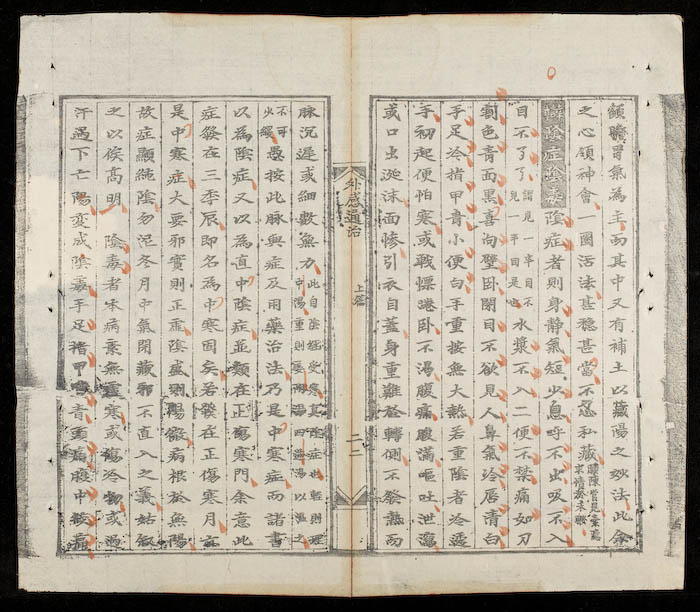 顧瞻胃氣為主而其中又有補土以藏陽之妙法此余
之心領神會一團活法甚穩甚當不忍私藏
陰症者則身靜氣短少息呼不出吸不入
目不了了謂見一半目不見一半因是也水漿不入二便不禁痛如刀
割色青面黑喜向壁卧閉目不欲見人鼻氣冷唇青白
手足冷指甲青小便白手重按無大熱若重陰者冷透
手初起便怕寒或戰慄踡卧不渴腹痛腹滿嘔吐泄瀉
或口出涎沫面慘引衣自蓋身重難於轉側不發熱而
外感通治
上篇
二二
脉沉遲或細數無力此自陰經受寒真陰症也輕則理中湯重則姜附湯四逆湯以溫之
不可火緩愚按此脉與症及用藥治法乃是中寒症而諸書
以為陰症又以為直中陰症並類在正傷寒門余意此
症發在三季辰即名為中寒固矣若發在正傷寒月亦
是中寒症大要邪實則正虛陰盛則陽微病根於無陽
故症顯純陰勿泥冬月中氣閉藏邪不直入之義姑收
之以俟高明 陰毒者本病素無虛寒或傷冷物或過
汗過下亡陽變成陰毒手足指甲皆青